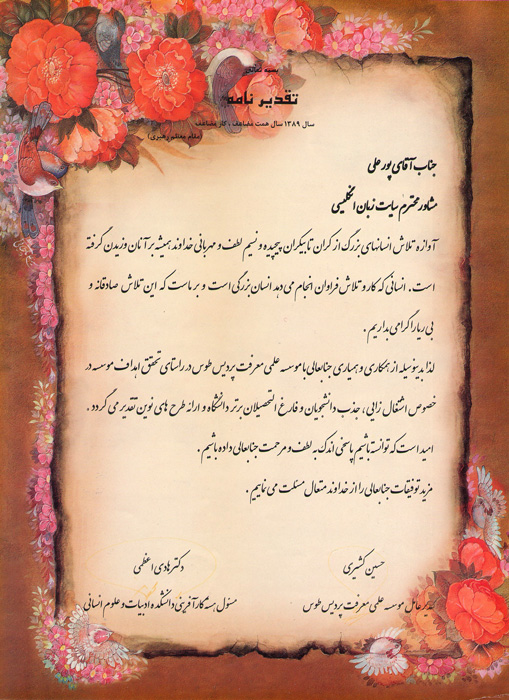 بسمه تعالی
تقدیر نامه
سال ۱۳۸۹ سال همت مضاعف ، کار مضاعف
(مقام معظم رهبری)
جناب آقای پور علی
مشاور محترم سایت زبان انگلیسی
آوازه تلاش انسانهای بزرگ از کران تا بیکران پیچیده و نسیم لطف و مهربانی خداوند همیشه بر آنان وزیدن گرفته
است . انسانی که کار و تلاش فراوان انجام می دهد انسان بزرگی است و بر ماست که این تلاش صادقانه و
بی ریا را گرامی بداریم .
لذا بدینوسیله از همکاری و همیاری جنابعالی با موسسه علمی معرفت پردیس طوس در راستای تحقق اهداف موسسه در
خصوص اشتغال زایی ، جذب دانشجویان و فارغ التحصیلان برتر دانشگاه و ارائه طرح های نوین تقدیر می گردد .
امید است که توانسته باشیم پاسخی اندک به لطف و مرحمت جنابعالی داده باشیم .
مزید توفیقات جنابعالی را از خداوند متعال مسئلت می نماییم .
حسین کشیری
مدیر عامل موسسه علمی معرفت پردیس طوس
دکتر هادی اعظمی
مسئول هسته کارآفرینی دانشکده ادبیات و علوم انسانی